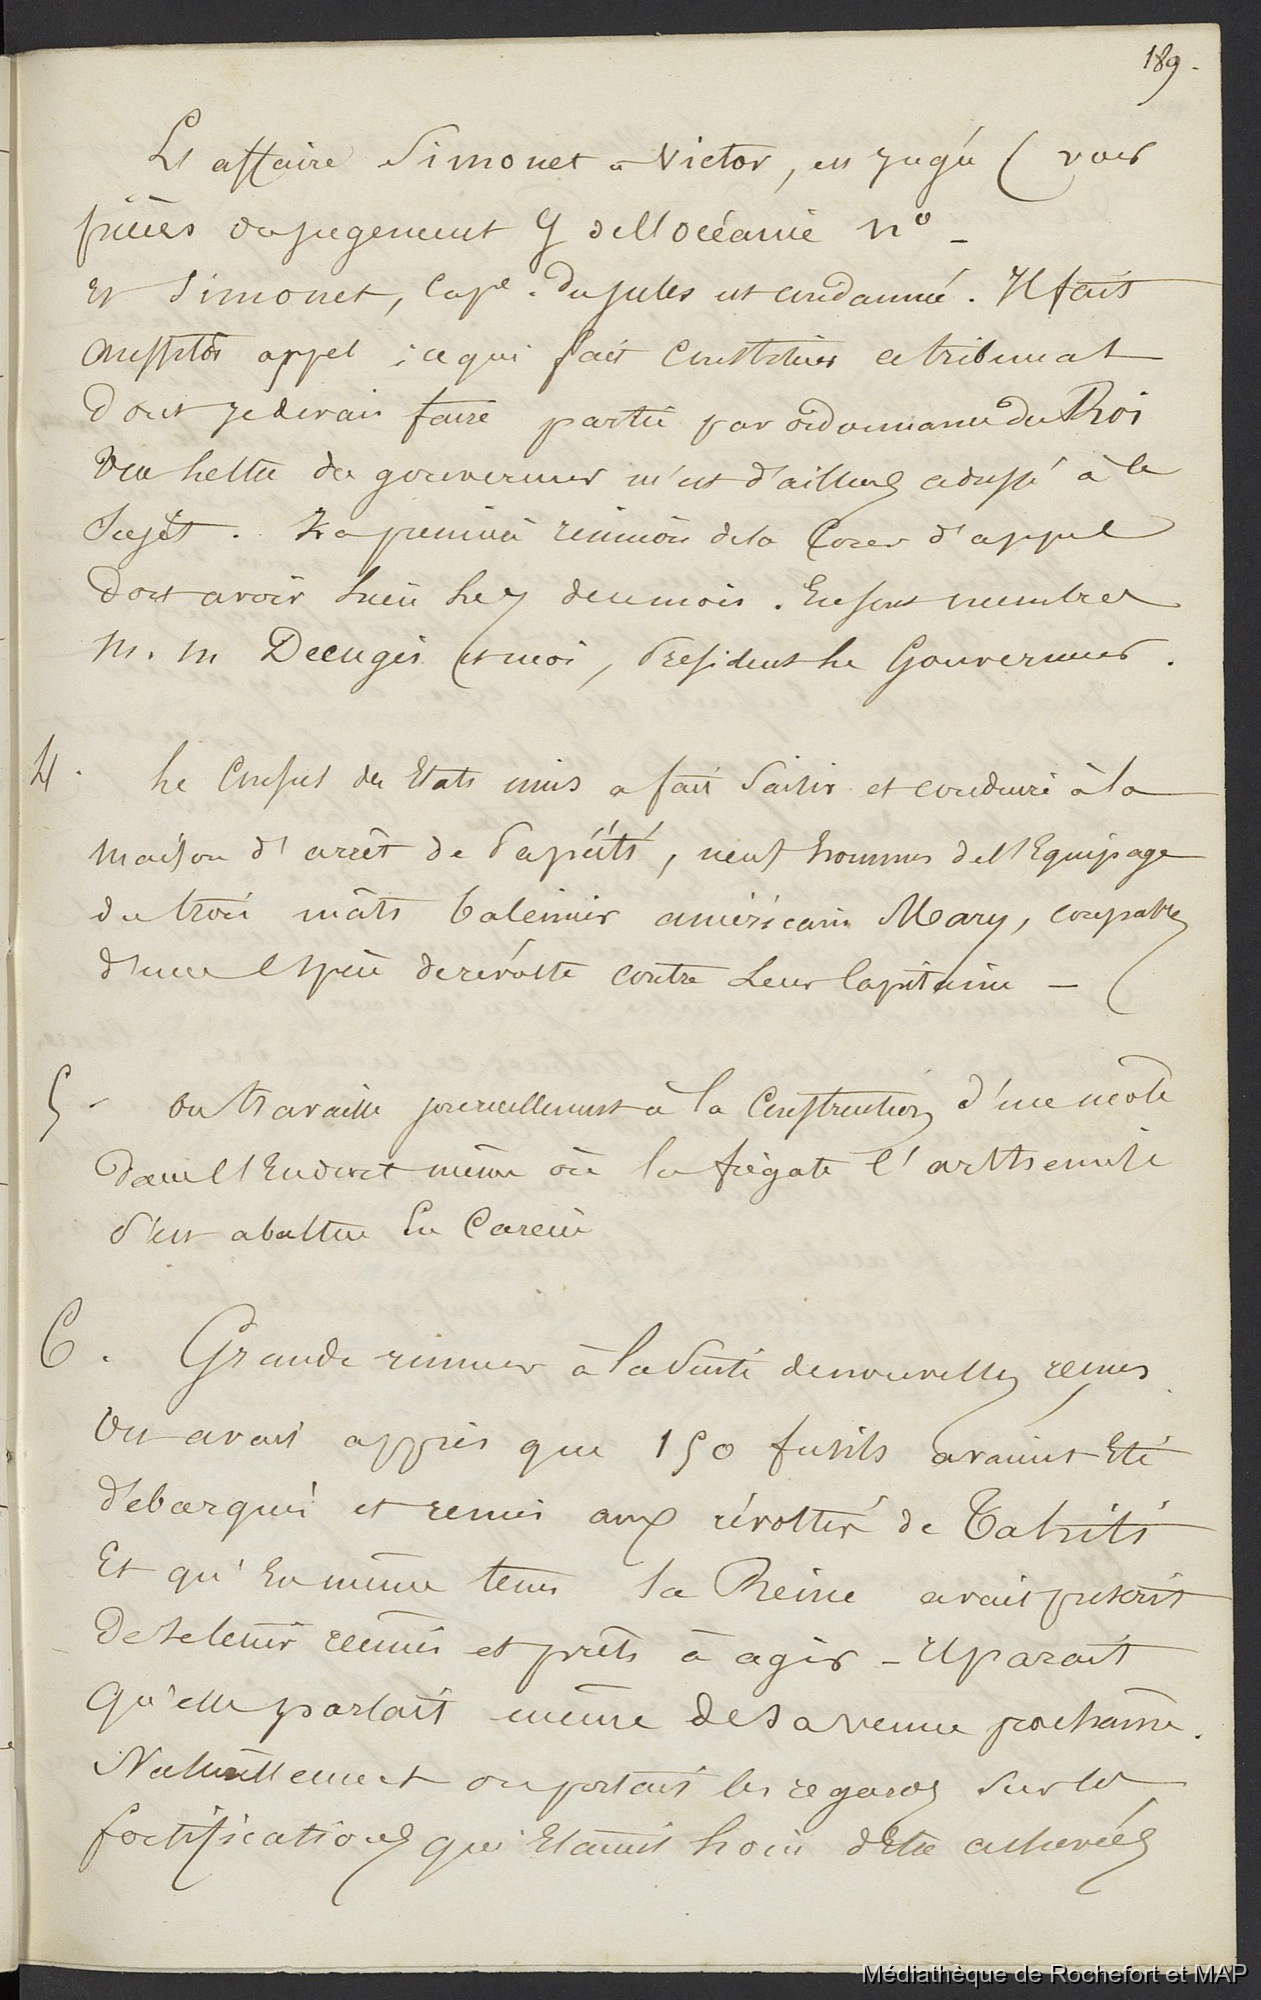 189.
L'affaire Simonet & Victor, est jugée (voir
pièces du jugement J de l'océanie n° _
et Simonet, Cape. du jules est condamné. Il fait
aussitôt appel ; ce qui fait Constituer ce tribunal
dont je devrai faire partie par ordonnance du Roi
Une lettre du gouverneur m'est d'ailleurs adressé à ce
Sujet. La première réunion de la Cour d'appel
doit avoir lieu le 7 de ce mois. En sont membres
M. M Decugis et moi, Président le Gouverneur.
4. Le Consul des Etats unis a fait Saisir et conduire à la
maison d'arrêt de Papéiti, neuf hommes de l'Equipage
du trois mâts baleinier américain Mary, coupables
d'une espèce de révolte contre Leur Capitaine _
5 - On travaille journellement à la Construction d'une mole
dans l'Endroit même où la frégate l'arthemise
s'est abattue En Carène
6. Grande rumeur à la Suite de nouvelles reçues
On avait appris que 150 fusils avaient Eté
débarqués et remis aux révoltés de Tahiti
Et qu'En même tems la Reine avait prescrit
de se tenir réunis et prêts à agir _ Il parait
Qu'elle parlait même de sa venue prochaine.
Naturellement on portait les regards Sur les
fortifications qui Etaient loin d'Etre achevées
Médiathèque de Rochefort et MAP